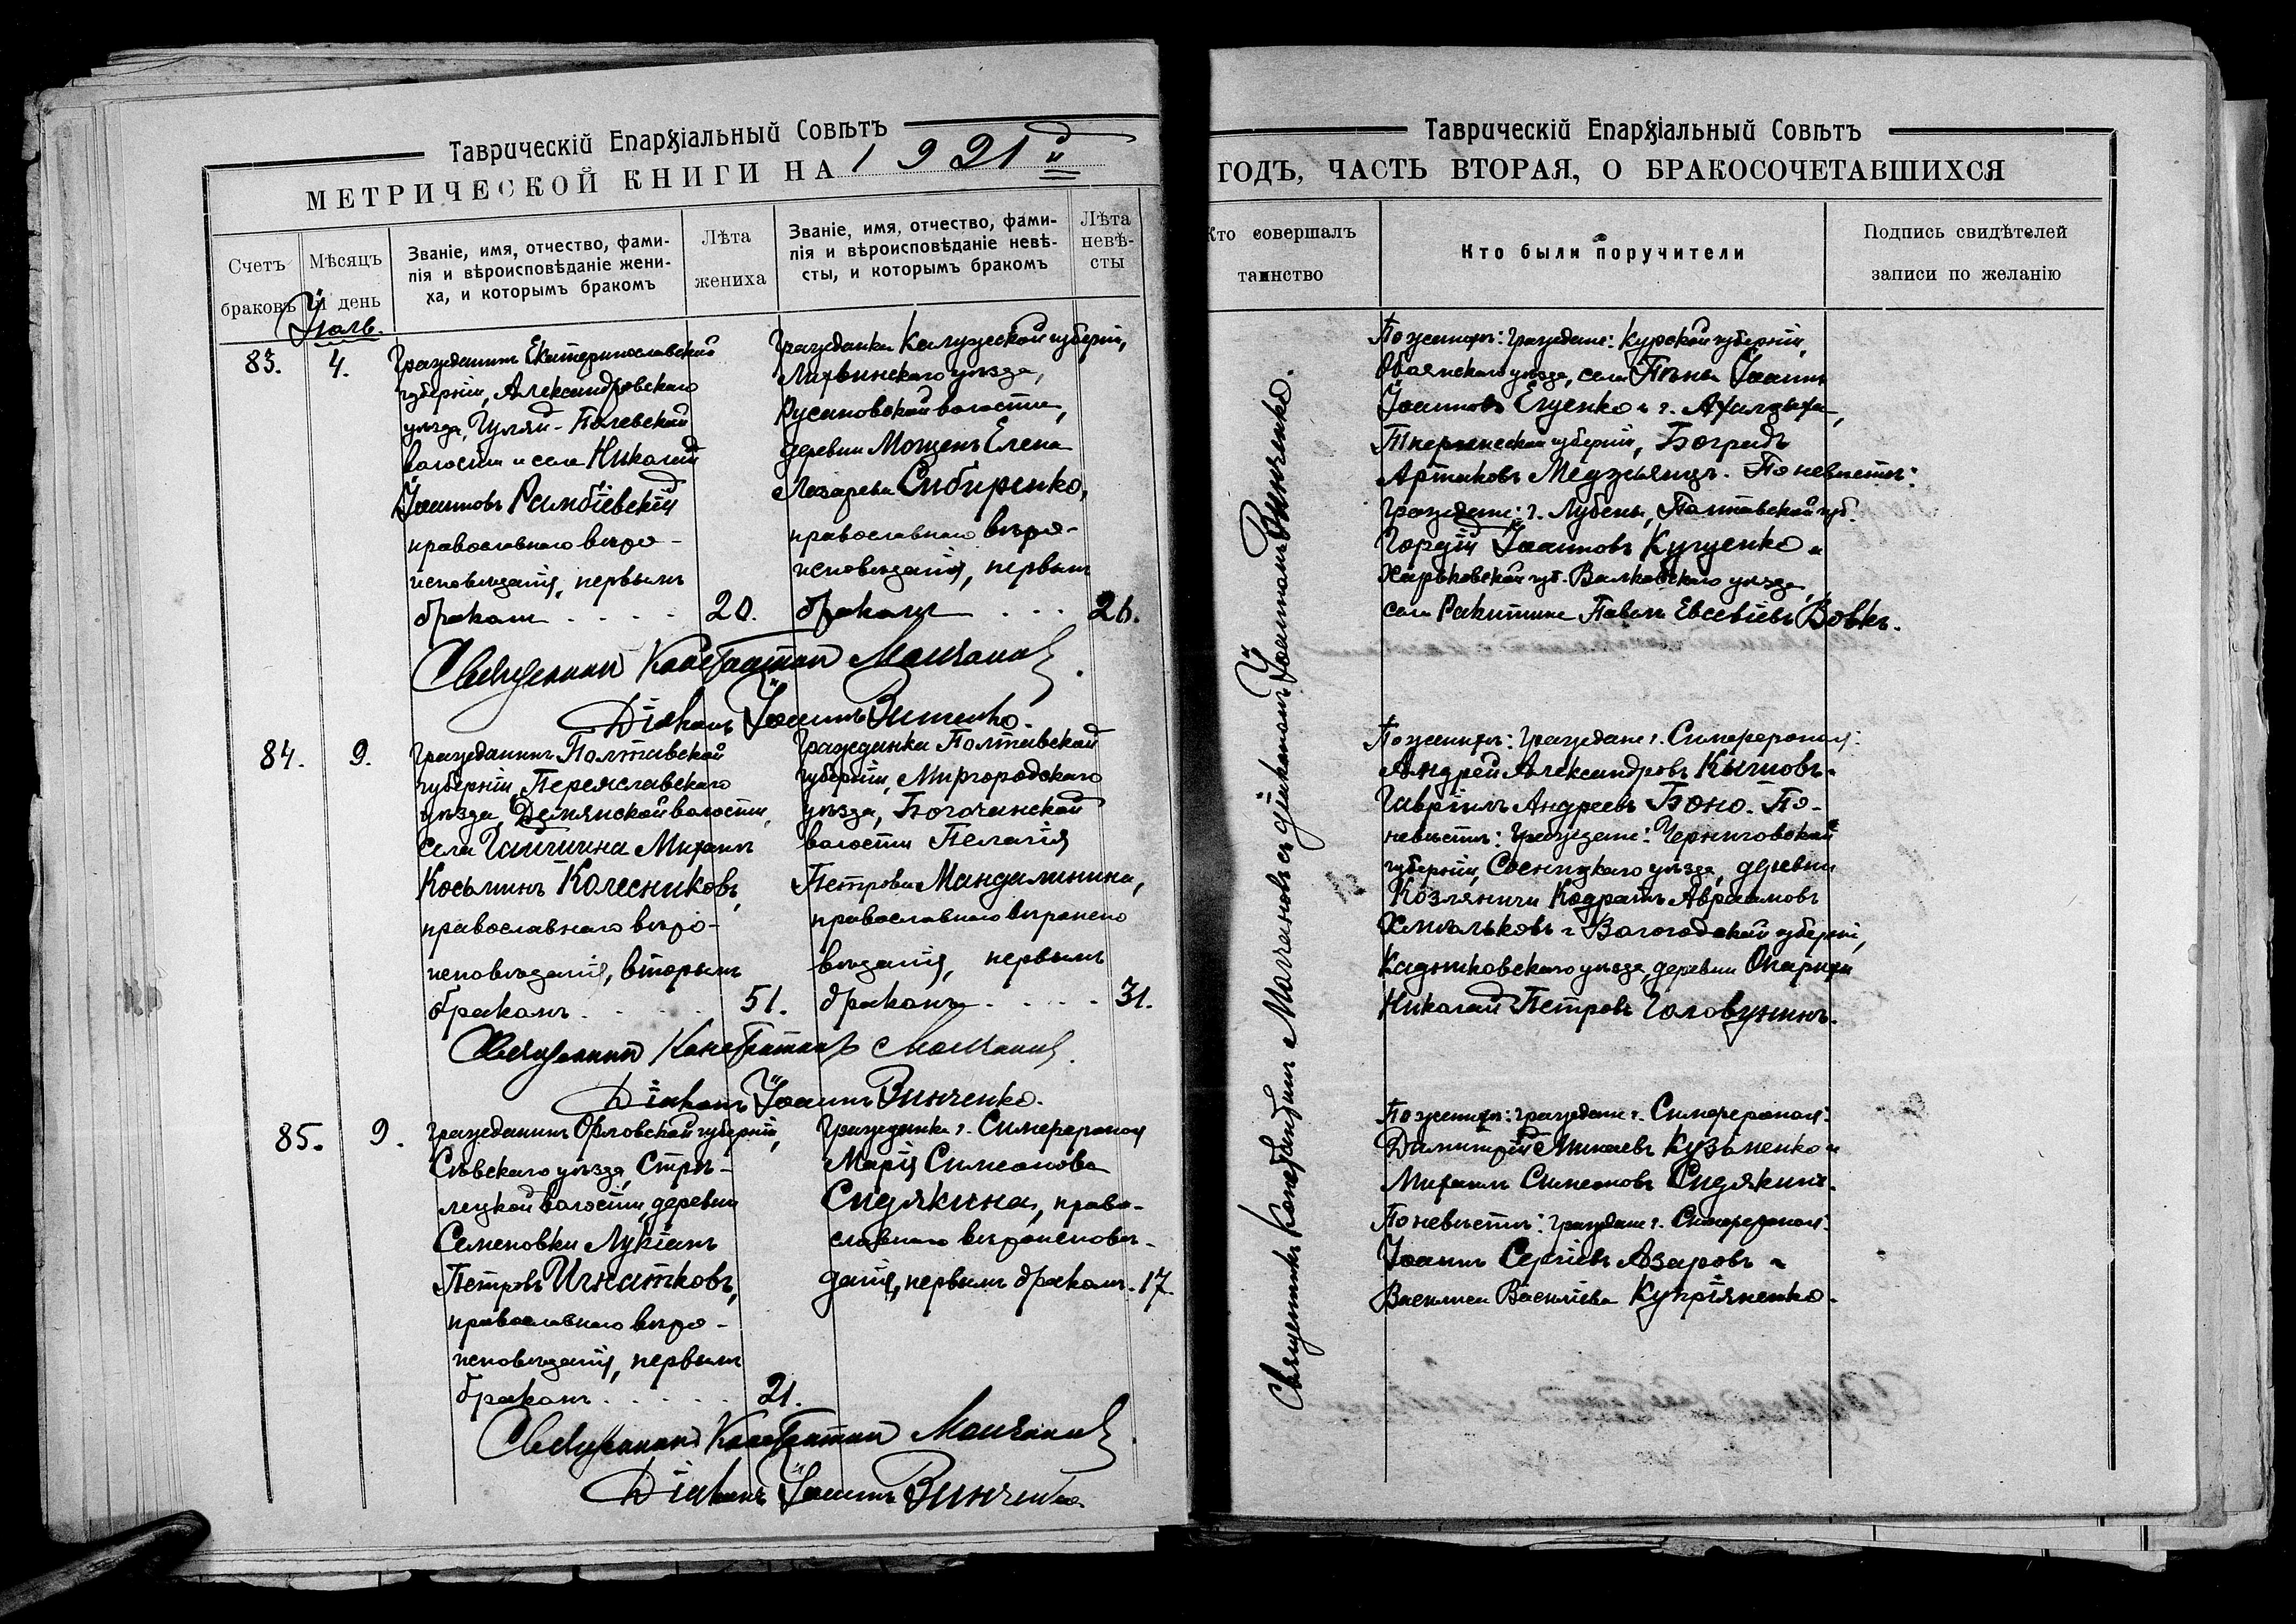 Таврическій Епархіальный Совѣтъ
МЕТРИЧЕСКОЙ КНИГИ НА 1921й
Счетъ браковъ
Мѣсяцъ и день
Званіе, имя, отчество, фами-
лія и вѣроисповѣданіе жени-
ха, и которымъ бракомъ
Лѣта
жениха
Званіе, имя, отчество, фами-
лія и вѣроисповѣданіе невѣ-
сты, и которымъ бракомъ
Лѣта
невѣ-
сты
Іюль.
83.
4.
Гражданинъ Екатеринославской
губерніи, Александровскаго
уѣзда, Гуляй-Полевской
волости и села Николай
Іоанновъ
православнаго вѣро-
исповѣданія, первымъ
бракомъ . . . . 20.
Гражданка Калужской губерніи,
Лихвинскаго уѣзда,
Русановской волости,
деревни Мощенъ Елена
Лазарева Сибиренко,
православнаго вѣро-
исповѣданія, первымъ
бракомъ . . . 26.
Священникъ Константинъ Молчановъ.
Діаконъ Іоаннъ Винченко.
84.
9.
Гражданинъ Полтавской
губерніи, Переяславскаго
уѣзда, Демянской волости,
села Гайшина Михаилъ
Косьминъ Колесниковъ,
православнаго вѣро-
исповѣданія, вторымъ
бракомъ . . . . 51.
Гражданка Полтавской
губерніи, Миргородскаго
уѣзда, Богочанской
волости Пелагія
Петрова Мандалинина,
православнаго вѣроиспо
вѣданія, первымъ
бракомъ . . . . 31.
Священникъ Константинъ Молчановъ.
Діаконъ Іоаннъ Винченко.
85.
9.
Гражданинъ Орловской губерніи,
Сѣвскаго уѣзда, Стрѣ-
лецкой волости, деревни
Семеновки Лукіанъ
Петровъ Игнатковъ,
православнаго вѣро-
исповѣданія, первымъ
бракомъ . . . . . 21.
Гражданка г. Симферополя
Марія Симеонова
Сидякина, право-
славнаго вѣроисповѣ-
данія, первымъ бракомъ. 17.
Священникъ Константинъ Молчановъ.
Діаконъ Іоаннъ Винченко
Таврическій Епархіальный Совѣтъ
ГОДЪ, ЧАСТЬ ВТОРАЯ, О БРАКОСОЧЕТАВШИХСЯ
Кто совершалъ
таинство
Кто были поручители
Подпись свидѣтелей
записи по желанію
Священникъ Константинъ Молчановъ съ діакономъ Іоанномъ Винченко.
По женихѣ: граждане: Курской губерніи,
Обоянскаго уѣзда, села Пѣны Іоаннъ
Іоанновъ Егуенко и г. Ахалцыха,
губерніи, Боградъ
Артаковъ Медзьянцъ. По невѣстѣ:
Граждане: г. Лубенъ, Полтавской губ.
Гордій Іоанновъ Куцуенко и
Харьковской губ. Валковскаго уѣзда,
села Ракитина Павелъ Евсевіевъ Вовкъ.
По женихѣ: граждане г. Симферополя:
Андрей Александровъ Кычновъ и
Гавріилъ Андреевъ Боно. По-
невѣстѣ: граждане: Черниговской
губерніи, Сосницкаго уѣзда, деревни
Козляничи Кодратъ Авраамовъ
Хмѣльковъ и Вологодской губерніи,
Кадниковскаго уѣзда, деревни
Николай Петровъ Головунинъ.
По женихѣ: граждане г. Симферополя:
Димитрій Минаевъ Кузьменко и
Михаилъ Симеоновъ Сидякинъ.
По невѣстѣ: граждане г. Симферополя:
Іоаннъ Сергіевъ Азаровъ и
Василиса Васильева Купріяненко.